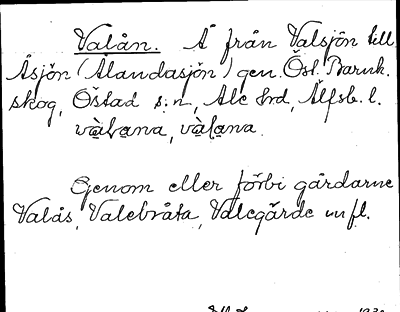 Valån. Å från Valsjön till
Åsjön (Ålandasjön) gen. Ösl. Barnk.
skog, Östad s:n, Ale hrd, Älfsb. l.
Genom eller förbi gårdarne
Valås, Valebråta, Valegärde m fl.